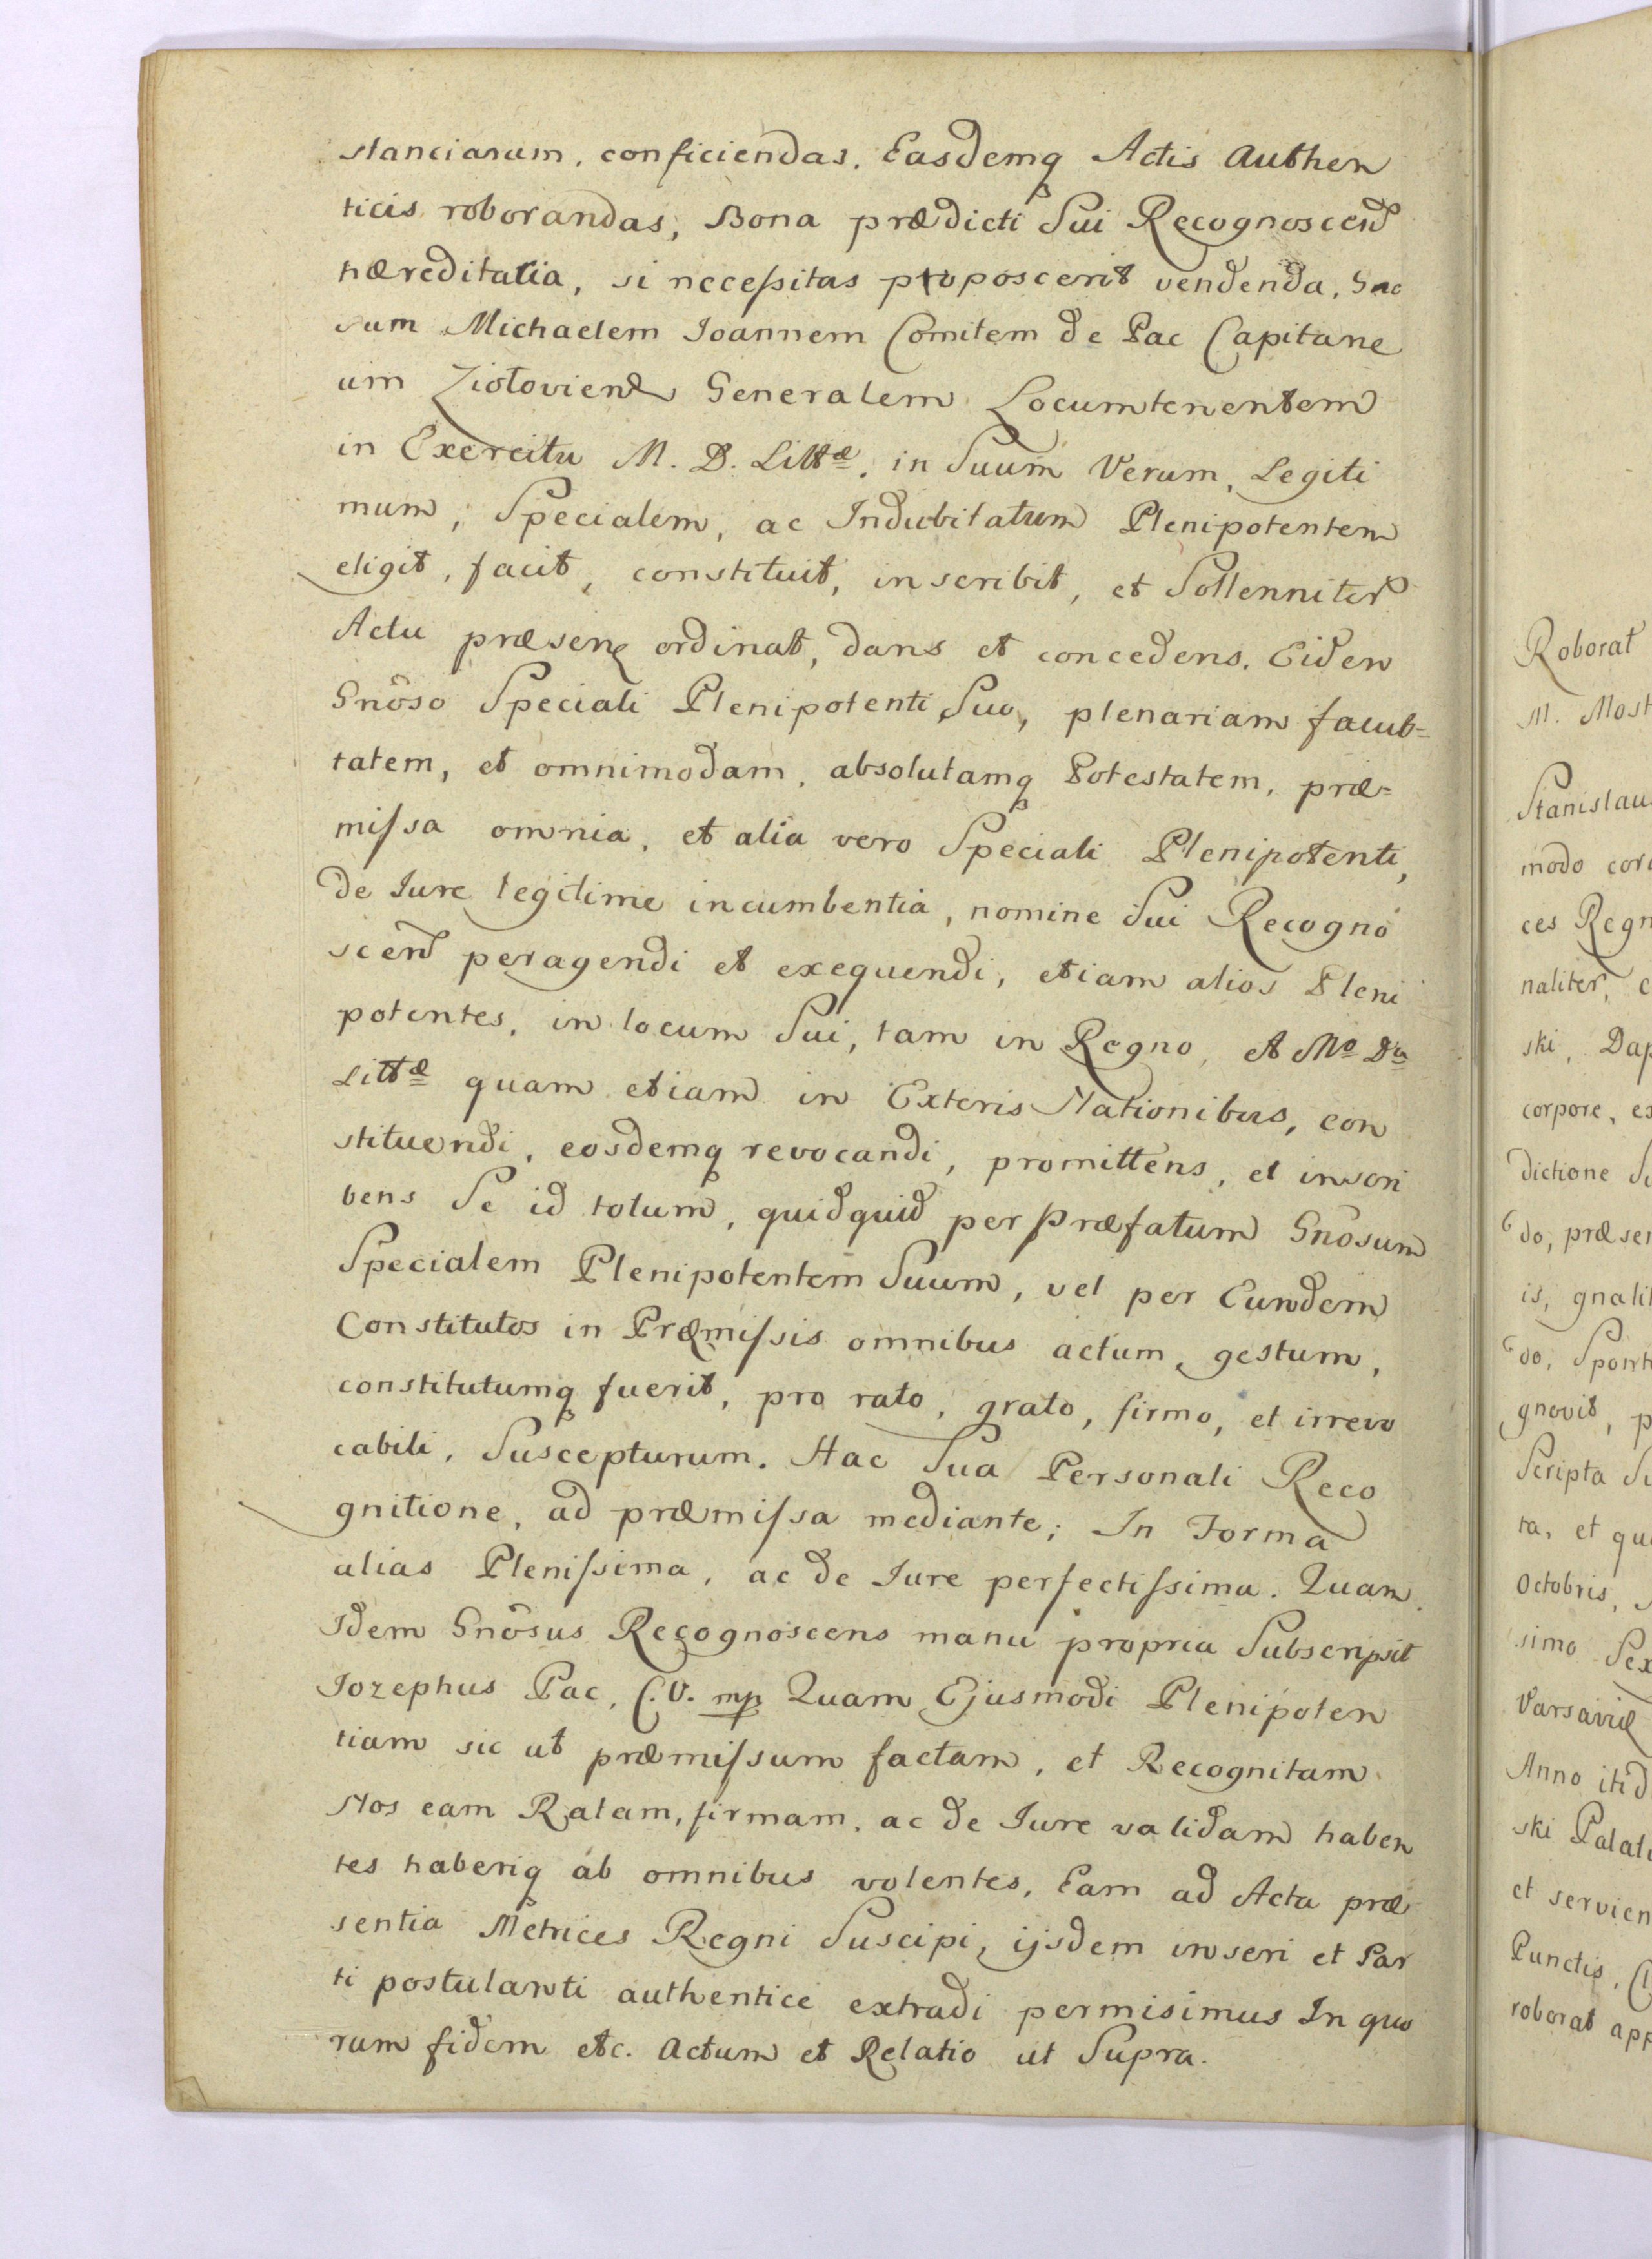 stanciarum, conficiendas. Easdemq Actis Authen
ticis roborandas, Bona prædicti Sui Recognoscen
hæreditaria, si necessitas proposcerit vendenda, Gno
sum Michaelem Joannem Comitem de Pac Capitane
um Ziołovien Generalem Locumtenentem
in Exercitu M. D. Littæ. in Suum Verum, Legiti
mum, Specialem, ac Indubitatum Plenipotentem
eligit, facit, constituit, inscribit, et Sollenniter
Actu præsen ordinat, dans et concedens. Eidem
Gnoso Speciali Plenipotenti Suo, plenariam facul=
tatem, et omnimodam, absolutamq Potestatem, præ=
missa omnia, et alia vero Speciali Plenipotenti,
de Iure legitime incumbentia, nomine Sui Recogno
scen peragendi et exequendi, etiam alios Pleni
potentes, in locum Sui, tam in Regno, et Mo Du
Littæ quam etiam in Exteris Nationibus, con
stituendi, eosdemq revocandi, promittens, et inscri
bens Se id totum, quidquid per Præfatum Gnosum
Specialem Plenipotentem Suum, vel per Eundem
Constitutos in Præmissis omnibus actum, gestum,
constitutumq fuerit, pro rato, grato, firmo, et irrevo
cabili, Suscepturum. Hac Sua Personali Reco
gnitione, ad præmissa mediante; In Forma
alias Plenissima, ac de Iure perfectissima. Quam
Idem Gnosus Recognoscens manu propria Subscripsit
Jozephus Pac, C. V. mp Quam Ejusmodi Plenipoten
tiam sic ut præmissum factam, et Recognitam
Nos eam Ratam, firmam, ac de Iure validam haben
tes haberiq ab omnibus volentes, Eam ad Acta præ
sentia Metrices Regni Suscipi, ijsdem inseri et Par
ti postulanti authentice extradi permisimus In quo
rum fidem etc. Actum et Relatio ut Supra.
Roborat
M. Most
Stanislau
modo cor
ces Regn
naliter, c
ski, Dap
corpore, ex
dictione Su
do, præsen
is, gnalit
do, Spont
gnovit, p
Scripta Su
ta, et qu
Octobris, S
simo Sex
Varsaviæ
Anno itid
ski Palati
et servien
Punctis, Cl
roborat app